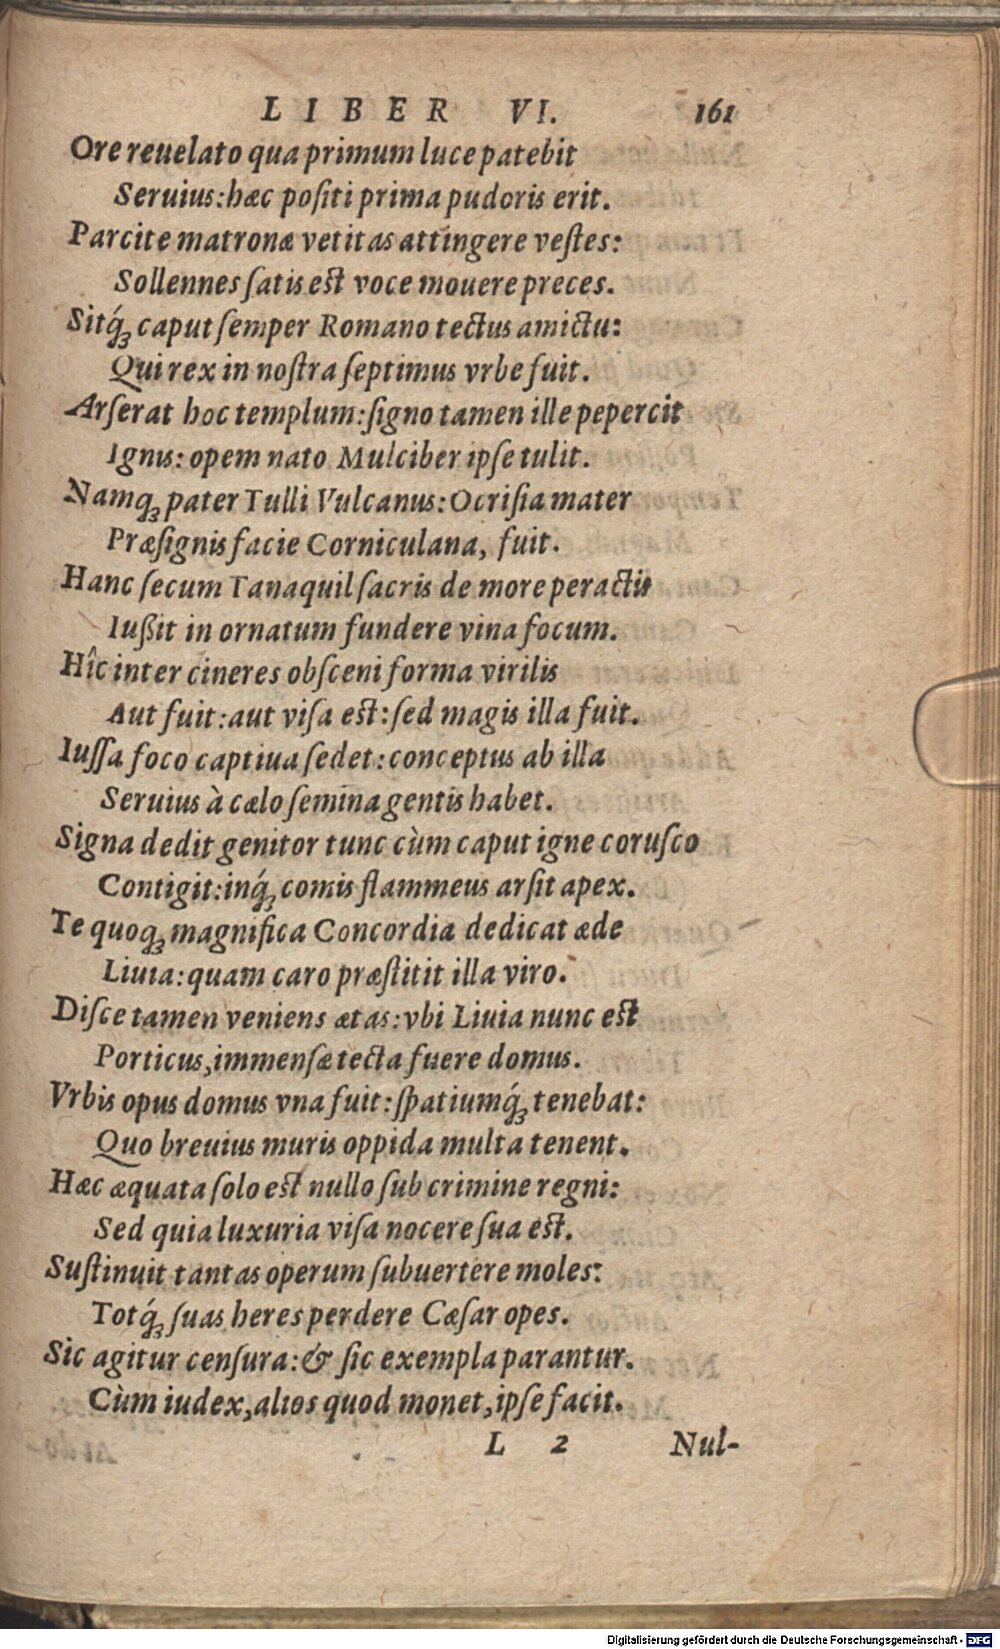 LIBER VI. 161
Ore reuelato qua primum luce patebit
Seruius: hæc positi prima pudoris erit.
Parcite matronæ vetitas attingere vestes:
Sollennes satis est voce mouere preces.
Sitq́ꝫ caput semper Romano tectus amictu:
Qui rex in nostra septimus vrbe fuit.
Arserat hoc templum: signo tamen ille pepercit
Ignis: opem nato Mulciber ipse tulit.
Namqꝫ pater Tulli Vulcanus: Ocrisia mater
Præsignis facie Corniculana, fuit.
Hanc secum Tanaquil sacris de more peractis
Iußit in ornatum fundere vina focum.
Hîc inter cineres obsceni forma virilis
Aut fuit: aut visa est: sed magis illa fuit.
Iussa foco captiua sedet: conceptus ab illa
Seruius à cælo semina gentis habet.
Signa dedit genitor tunc cùm caput igne corusco
Contigit: inq́ꝫ comis flammeus arsit apex.
Te quoqꝫ magnifica Concordia dedicat æde
Liuia: quam caro præstitit illa viro.
Disce tamen veniens ætas: vbi Liuia nunc est
Porticus, immensæ tecta fuere domus.
Vrbis opus domus vna fuit: spatiumq́ꝫ tenebat:
Quo breuius muris oppida multa tenent.
Hæc æquata solo est nullo sub crimine regni:
Sed quia luxuria visa nocere sua est.
Sustinuit tantas operum subuertere moles:
Totq́ꝫ suas heres perdere Cæsar opes.
Sic agitur censura: & sic exempla parantur.
Cùm iudex, alios quod monet, ipse facit.
L 2 Nul-
Digitalisierung gefördert durch die Deutsche Forschungsgemeinschaft - DFG